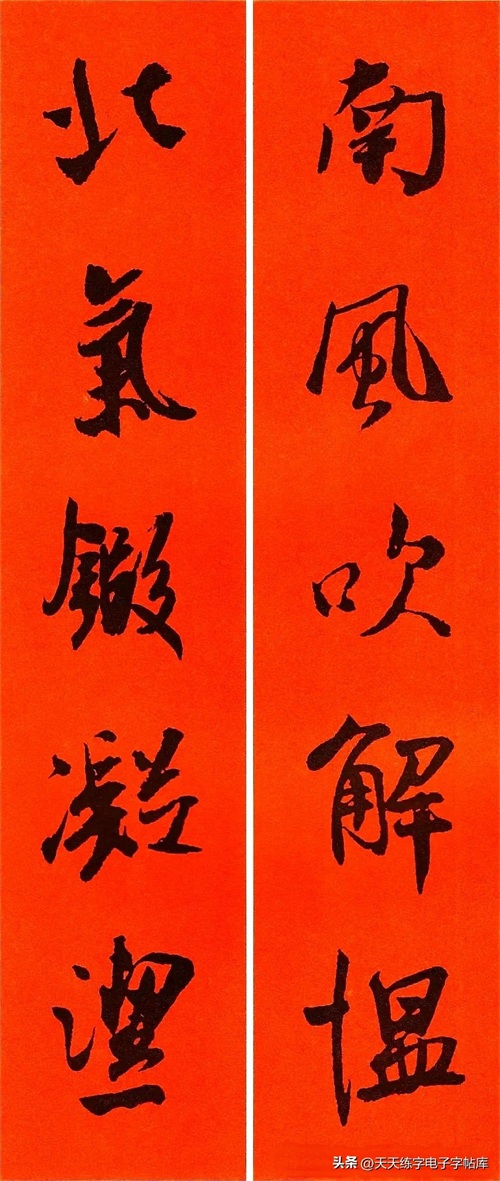 南風吹解慍
北氣鍛凝
头条 @天天练字电子字帖库